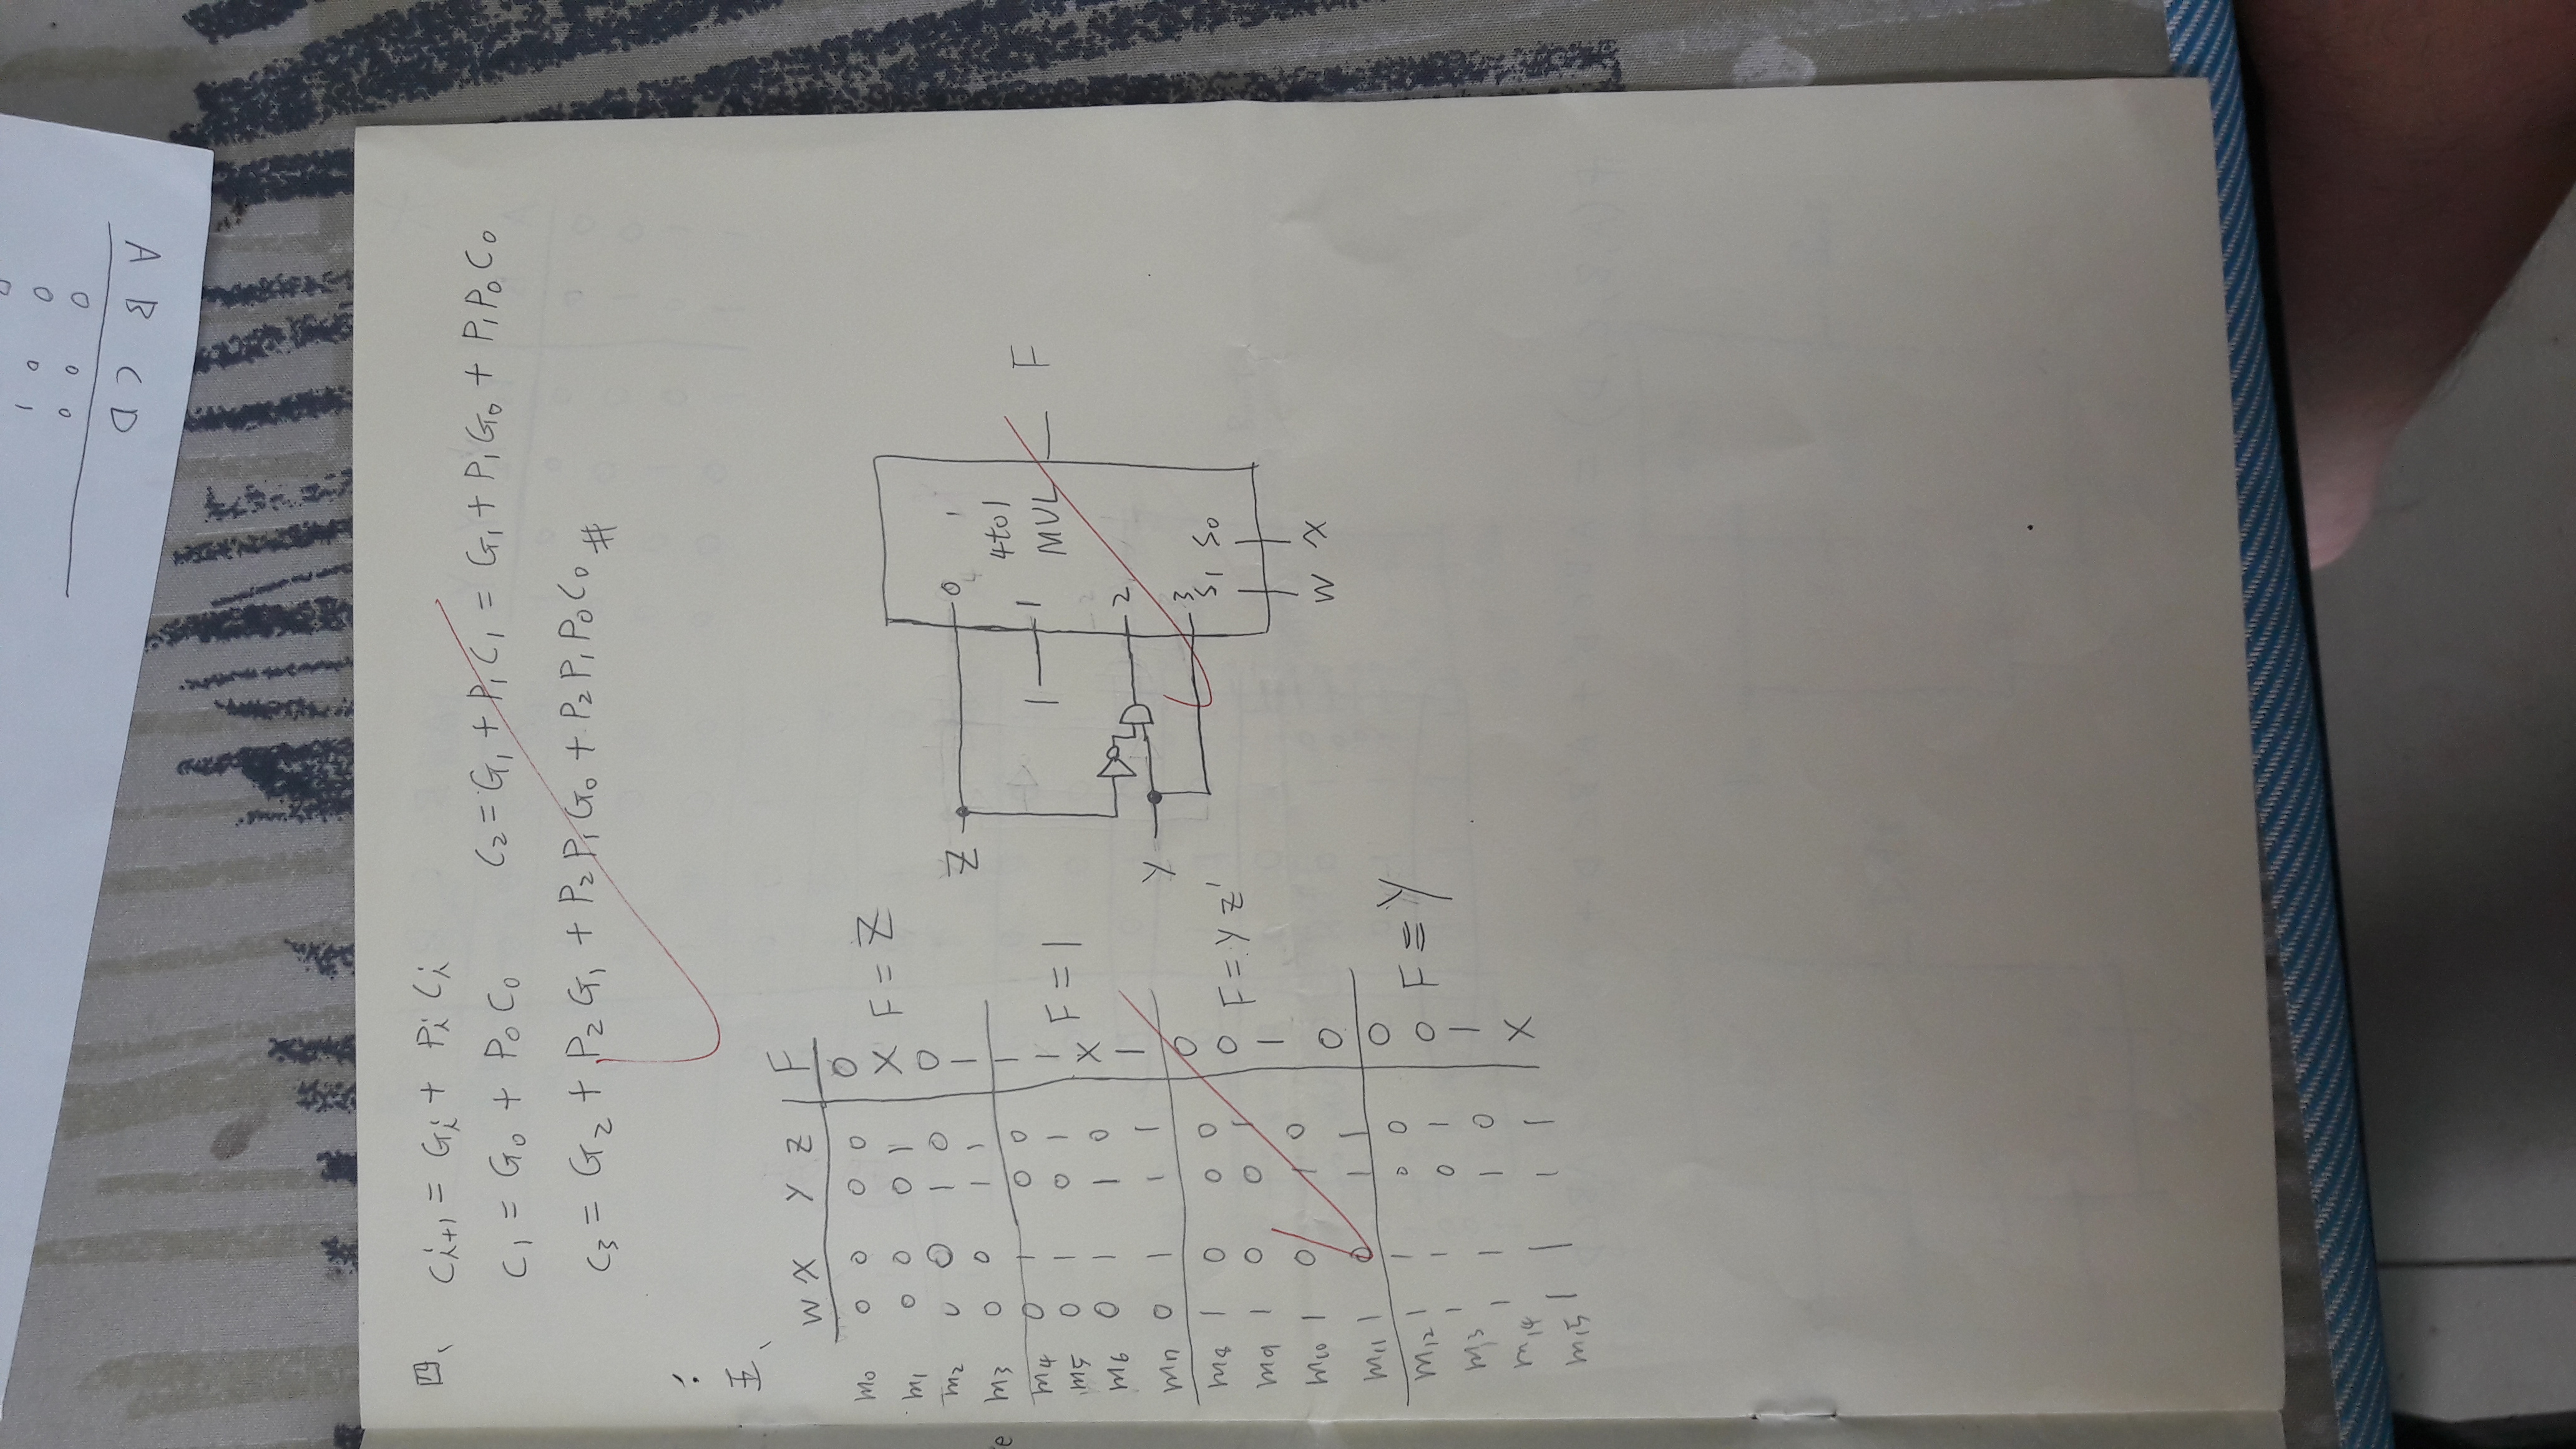 A B C D
0 0 0
0 0 1
0
四、 Ci+1 = Gi + Pi Ci
C1 = G0 + P0 C0 C2 = G1 + P1 C1 = G1 + P1 G0 + P1 P0 C0
C3 = G2 + P2 G1 + P2 P1 G0 + P2 P1 P0 C0 #
五、
W X Y Z F
m0 0 0 0 0 0
m1 0 0 0 1 X F = Z
m2 0 0 1 0 0
m3 0 0 1 1 1
m4 0 1 0 0 1
m5 0 1 0 1 1 F = 1
m6 0 1 1 0 X
m7 0 1 1 1 1
m8 1 0 0 0 0
m9 1 0 0 1 0 F = Y Z'
m10 1 0 1 0 1
m11 1 0 1 1 0
m12 1 1 0 0 0
m13 1 1 0 1 0 F = Y
m14 1 1 1 0 1
m15 1 1 1 1 X
Z 0
4to1
1 1 MUL F
2
Y
3
S1 S0
W X
e